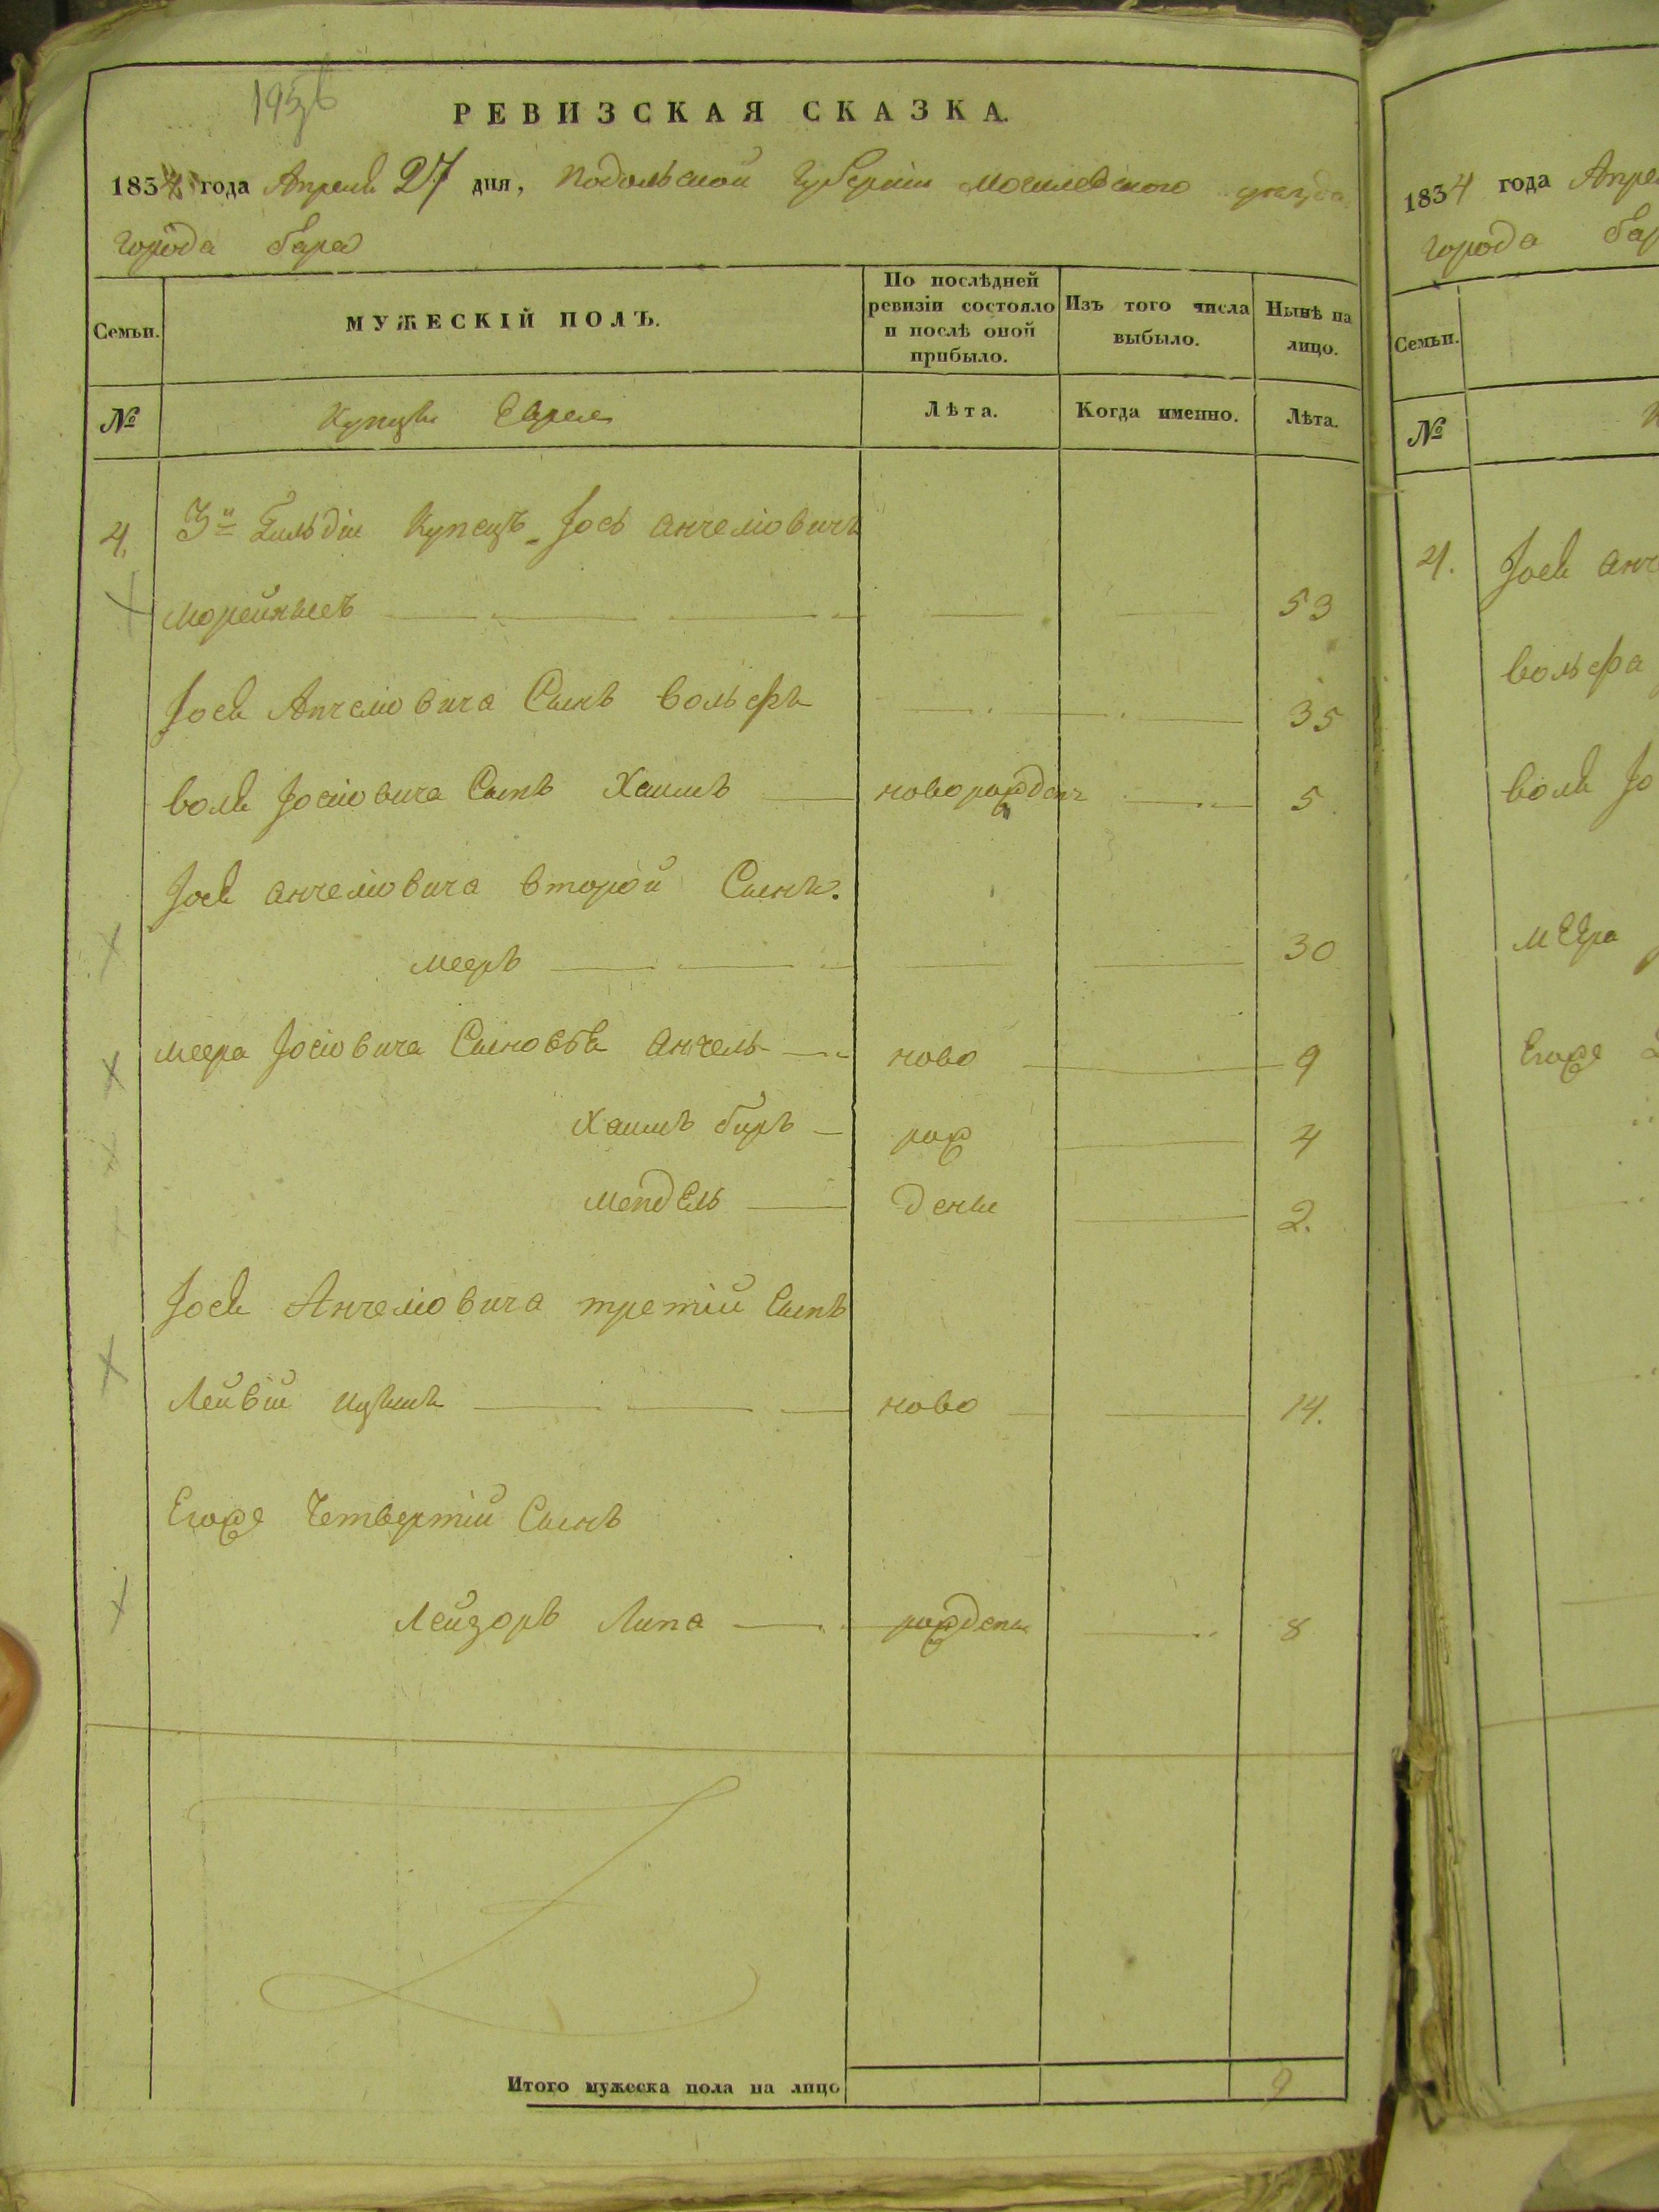 195 об
РЕВИЗСКАЯ СКАЗКА.
1834 года Апреля 27 дня, Подольской Губернии Могилевского уезда
города бара
Семьи. МУЖЕСКІЙ ПОЛЪ. По послѣдней ревизіи состояло и послѣ оной прибыло. Изъ того числа выбыло. Нынѣ на лицо.
№ Купцы Евреи Лѣта. Когда именно. Лѣта.
4. 3й Гильдіи Купецъ Іось анчеліовичъ
53
Іося Анчеліовича Сынъ вольфъ 35
воля Іосіовича Сынъ Хаимъ новорожден 5
Іося анчеліовича второй Сынъ.
меерь 30
меера Іосіовича Сыновья анчель ново 9
Хаимъ беръ рож 4
мендель дены 2.
Іося Анчеліовича третій Сынъ
Лейвій ново 14.
Егоже Четвертій Сынъ
Лейзоръ Липа рождены 8
Итого мужеска пола на лицо 9
1834 года Апре
города бар
Семьи.
№
4. Іося анч
вольфа
воля Іо
меера
Егоже